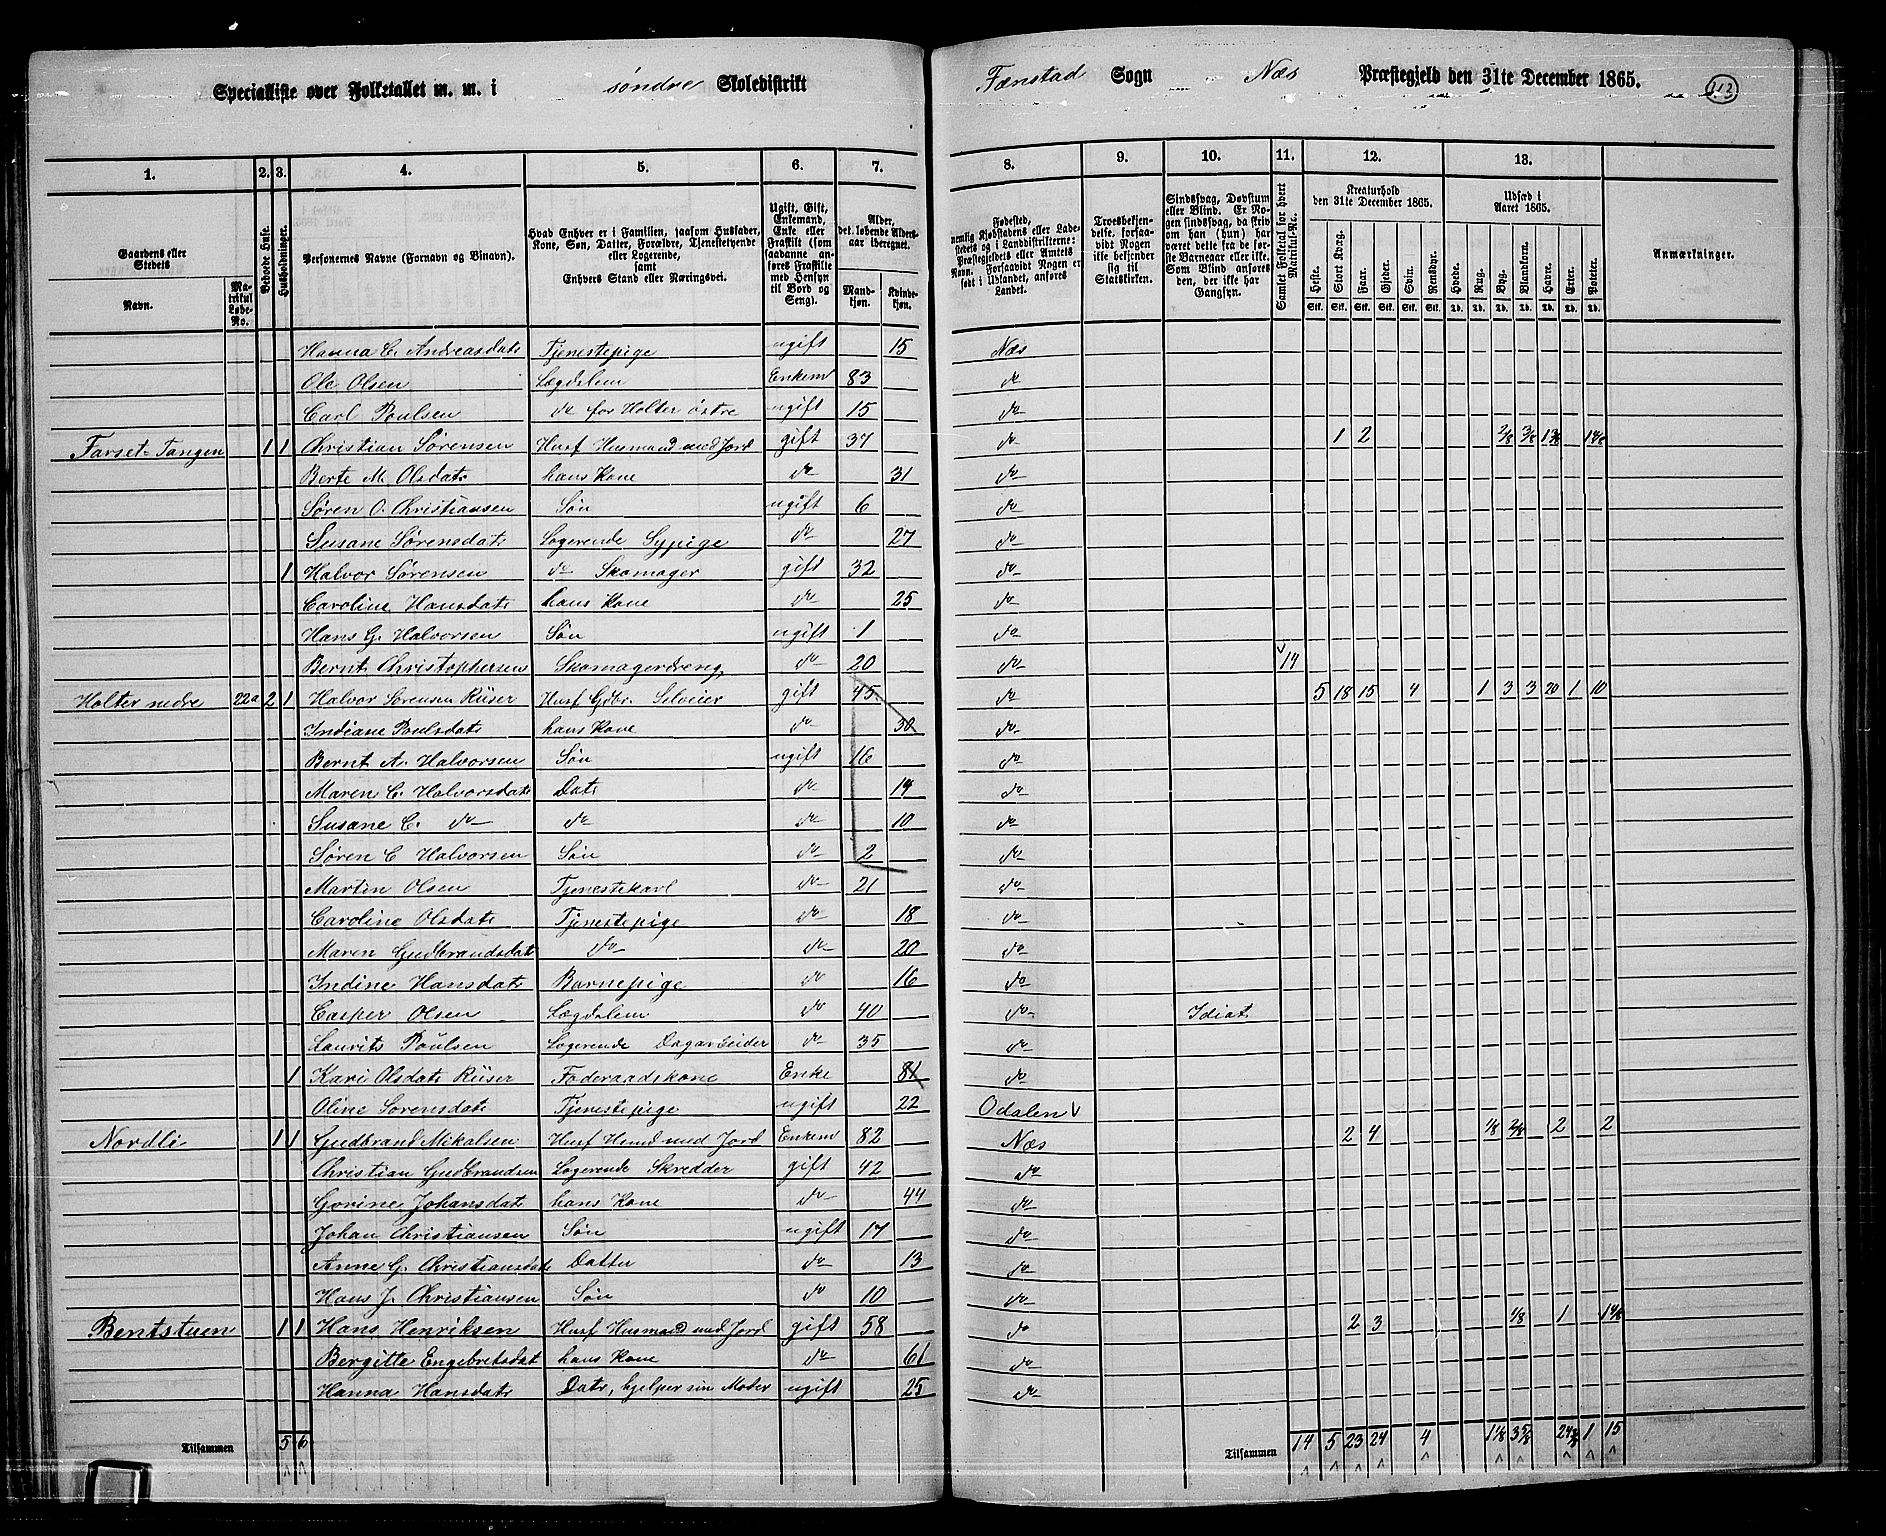 Specialliste over Folketallet m. m. i søndre Skoledistrikt Fænstad Sogn Næs Præstegjeld den 31te December 1865. 113
1. 2. 3. 4. 5. 6. 7. 8. 9. 10. 11. 12. 13.
Gaardens eller Stedets
Navn.
Matrikul Løbe-No.
Beboede Huse.
Husholdninger.
Personernes Navne (Fornavn og Binavn).
Hvad Enhver er i Familien, saasom Husfader, Kone, Søn, Datter, Forældre, Tjenestetyende eller Logerende, samt Enhvers Stand eller Næringsvei.
Ugift, Gift, Enkemand, Enke eller Fraskilt (som saadanne anføres Fraskilte med Hensyn til Bord og Seng).
Alder, det løbende Alders-aar iberegnet.
Mandkjøn. Kvindekjøn.
Fødested, nemlig Kjøbstadens eller Ladestedets og i Landdistrikterne: Præstegjeldets eller Amtets Navn. Forsaavidt Nogen er født i Udlandet, anføres Landet.
Troesbekjendelse, forsaavidt Nogen ikke bekjender sig til Statskirken.
Sindssvag, Døvstum eller Blind. Er Nogen sindssvag, da skriv om han (hun) har været dette fra de første Barneaar eller ikke. Som Blind anføres den, der ikke har Gangsyn.
Samlet Folketal for hvert Matrikul-Nr.
Kreaturhold den 31te December 1865.
Heste. Stort Kvæg. Faar. Gjeder. Svin. Rensdyr.
Stk. Stk. Stk. Stk. Stk. Stk.
Udsæd i Aaret 1865.
Hvede. Rug. Byg. Blandkorn. Havre. Erter. Poteter.
Td. Td. Td. Td. Td. Td. Td.
Anmærkninger.
Hanna C. Andreasdatr Tjenestepige ugift 15 Næs
Ole Olsen Lægdslem Enkem 83 do
Carl Poulsen do for Holter østre ugift 15 do
Farset-Tangen 1 1 Christian Sørensen Husf Husmand med Jord gift 37 do 1 2 2/8 3/8
Berte M. Olsdatr hans Kone do 31 do
Søren O. Christiansen Søn ugift 6 do
Susane Sørensdatr Logerende Sypige do 27 do
1 Halvor Sørensen do Skomager gift 32 do
Caroline Hansdatr hans Kone do 25 do
Hans G. Halvorsen Søn ugift 1 do
Bernt Christophersen Skomagerdreng do 20 do 14
Holter nedre 22a 2 1 Halvor Sorensen Riiser Husf Gdbr. Selveier gift 45 do 5 18 15 4 1 3 3 20 1 10
Indiane Poulsdatr hans Kone do 30 do
Bernt A. Halvorsen Søn ugift 16 do
Maren C. Halvorsdatr Datr do 14 do
Susane C. do do do 10 do
Søren C Halvorsen Søn do 2 do
Martin Olsen Tjenestekarl do 21 do
Caroline Olsdatr Tjenestepige do 18 do
Maren Gudbrandsdatr do do 20 do
Indine Hansdatr Barnepige do 16 do
Casper Olsen Lægdslem do 40 do Idiot
Laurits Poulsen Logerende Dagarbeider do 35 do
1 Kari Olsdatr Riiser Føderaadskone Enke 81 do
Oline Sorensdatr Tjenestepige ugift 22 Odalen
Nordli 1 1 Gudbrand Mikalsen Husf Husmd med Jord Enkem 82 Næs 2 4 1/8 2/8 2 2
Christian Gudbrandsen Logerende Skredder gift 42 do
Gorine Johansdatr hans Kone do 44 do
Johan Christiansen Søn ugift 17 do
Anne G. Christiansdatr Datter do 13 do
Hans J. Christiansen Søn do 10 do
Bentstuen 1 1 Hans Henriksen Husf Husmand med Jord gift 58 do 2 3 1/8 1 1 4/8
Bergitte Engebretsdat hans Kone do 61 do
Hanna Hansdatr Datr, hjelper sin Moder ugift 25 do
Tilsammen 5 6 Tilsammen 14 5 23 24 4 1 1/8 3 5/8 1 15